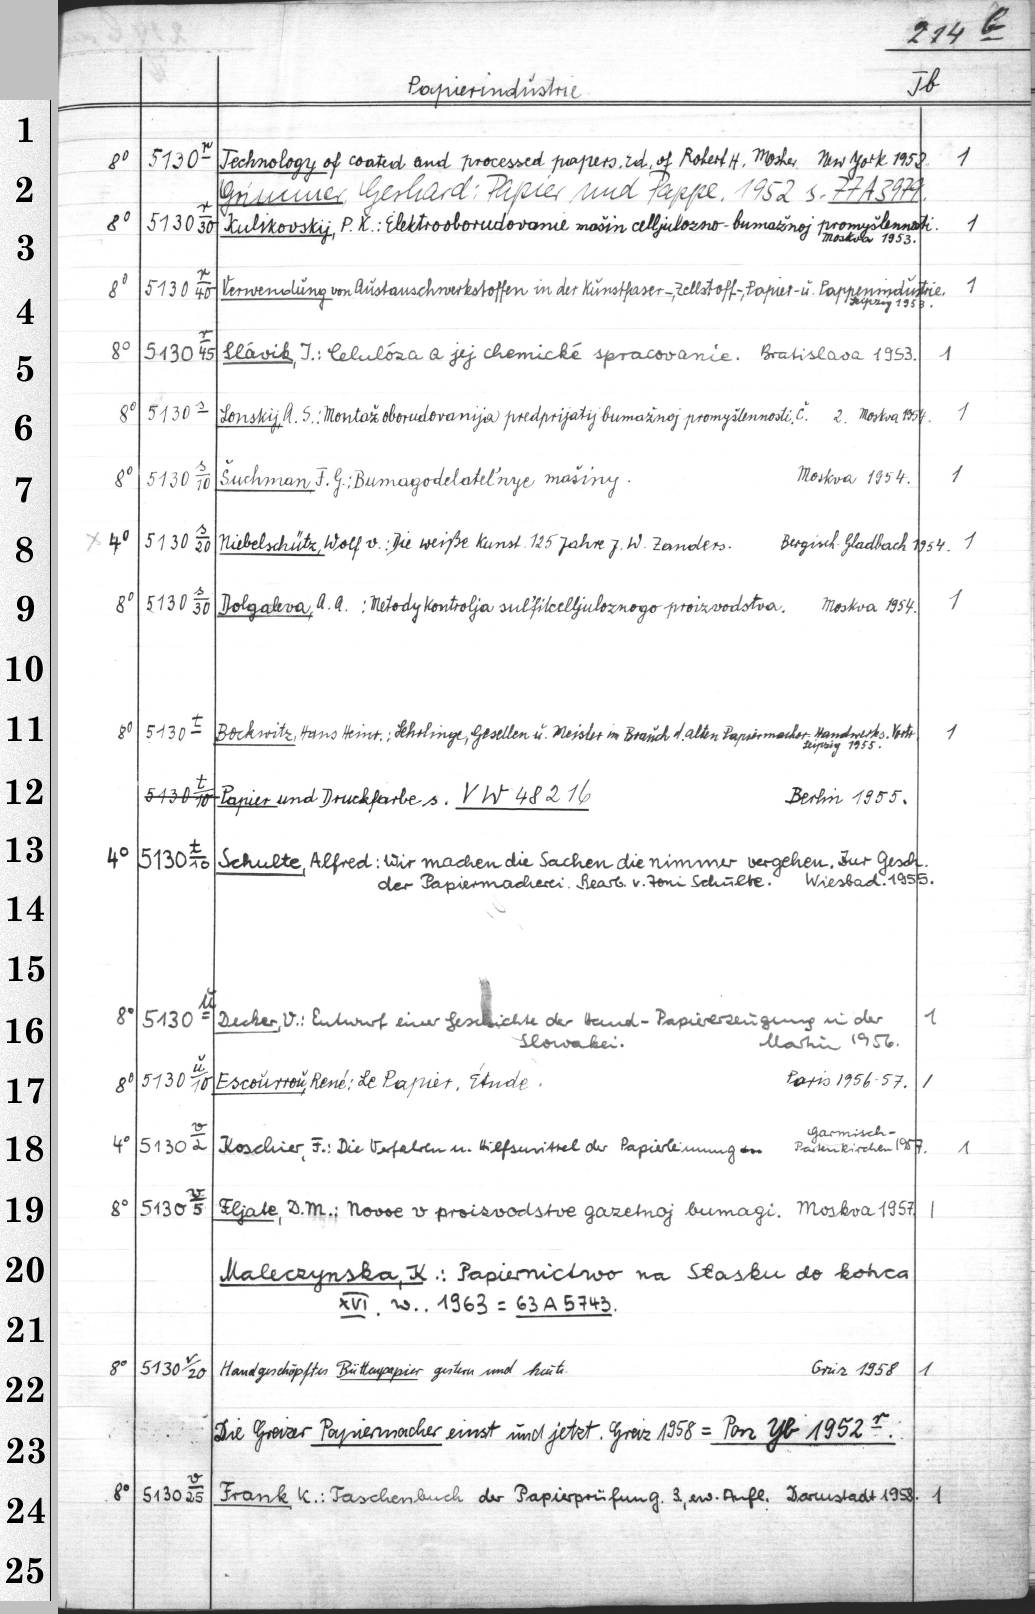 214 b
Papierindustrie Tb
1
8° 5130 r Technology of coated and processed papers. Ed. of Robert H. Mosher New York 1952. 1
2
Grimmer, Gerhard: Papier und Pappe. 1952 s. 77A3979.
8° 5130 r/30 Kulikovskij, P. K.: Elektrooborudovanie mašin celljulozno-bumažnoj promyšlennosti. 1
3
Moskva 1953.
8° 5130 r/40 Verwendung von Austauschwerkstoffen in der Kunstfaser-, Zellstoff-, Papier- u. Pappenindustrie. 1
Leipzig 1953.
4
8° 5130 r/45 Slávik, J.: Celulóza a jej chemické spracovanie. Bratislava 1953. 1
5
8° 5130 s Lonskij, A. S.: Montaž oborudovanija predprijatij bumažnoj promyšlennosti. Č. 2. Moskva 1954. 1
6
8° 5130 s/10 Šuchman F. G.: Bumagodelatel'nye mašiny. Moskva 1954. 1
7
x 4° 5130 s/20 Niebelschütz, Wolf v.: Die weiße Kunst. 125 Jahre J. W. Zanders. Bergisch-Gladbach 1954. 1
8
8° 5130 s/30 Dolgaleva, A. A. : Metody kontrolja sul'fitcelljuloznogo proizvodstva. Moskva 1954. 1
9
10
8° 5130 t Bockwitz, Hans Heinr.: Lehrlinge, Gesellen u. Meister im Brauch d. alten Papiermacher-Handwerks. Vortr. 1
11
Leipzig 1955.
12
5130 t/10 Papier und Druckfarbe s. VW 48216 Berlin 1955.
13
4° 5130 t/10 Schulte, Alfred: Wir machen die Sachen die nimmer vergehen. Zur Gesch.
der Papiermacherei. Bearb. v. Toni Schulte. Wiesbad. 1955.
14
15
8° 5130 u Decker, V.: Entwurf einer Geschichte der Hand-Papiererzeugung in der 1
16
Slowakei. Martin 1956.
8° 5130 u/10 Escourrou, René: Le Papier. Étude. Paris 1956-57. 1
17
4° 5130 v/2 Koschier, F.: Die Verfahren u. Hilfsmittel der Papierleimung Garmisch-Partenkirchen 1957. 1
18
8° 5130 v/5 Fljate, D.M.: Novoe v proizvodstve gazetnoj bumagi. Moskva 1957 1
19
20
Maleczynska, K.: Papiernictwo na Slasku do konca
XVI. w.. 1963 = 63 A 5743.
21
8° 5130 v/20 Handgeschöpftes Büttenpapier gestern und heute. Greiz 1958 1
22
Die Greizer Papiermacher einst und jetzt. Greiz 1958 = Pon Yb 1952 r.
23
8° 5130 v/25 Frank K.: Taschenbuch der Papierprüfung. 3, erw. Aufl. Darmstadt 1958. 1
24
25